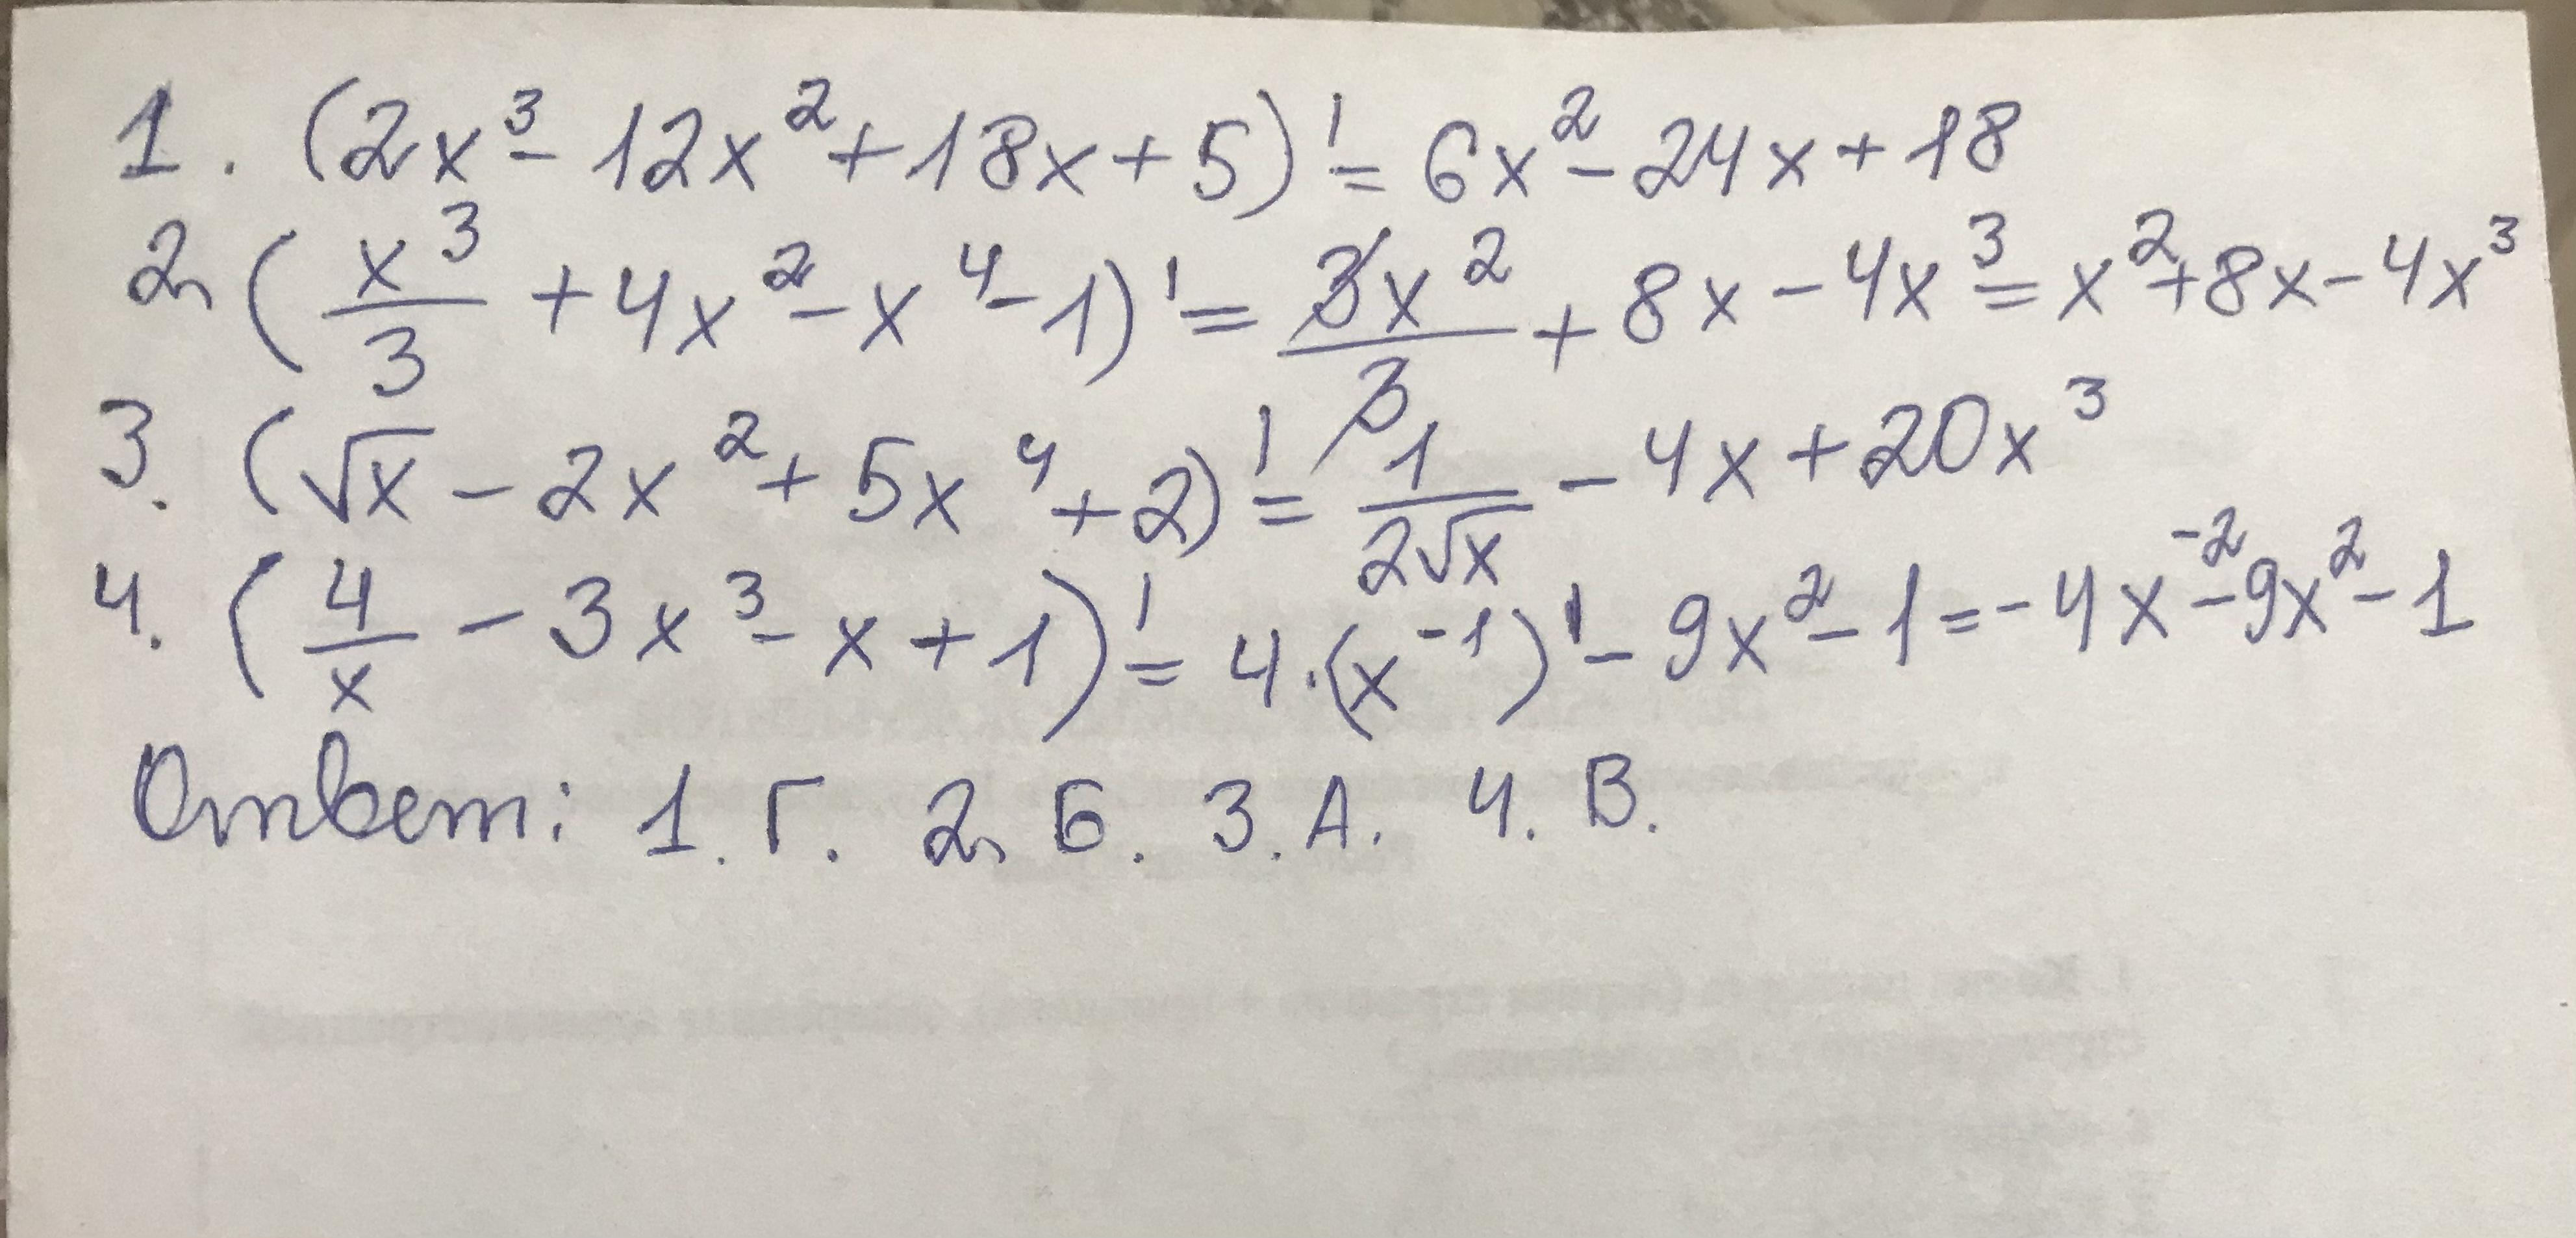 1. (2x³ - 12x² + 18x + 5)' = 6x² - 24x + 18
2. (x³/3 + 4x² - x⁴ - 1)' = 3x²/3 + 8x - 4x³ = x² + 8x - 4x³
3. (√x - 2x² + 5x⁴ + 2)' = 1/(2√x) - 4x + 20x³
4. (4/x - 3x³ - x + 1)' = 4·(x⁻¹)' - 9x² - 1 = -4x⁻² - 9x² - 1
Ответ: 1. Г. 2. Б. 3. А. 4. В.